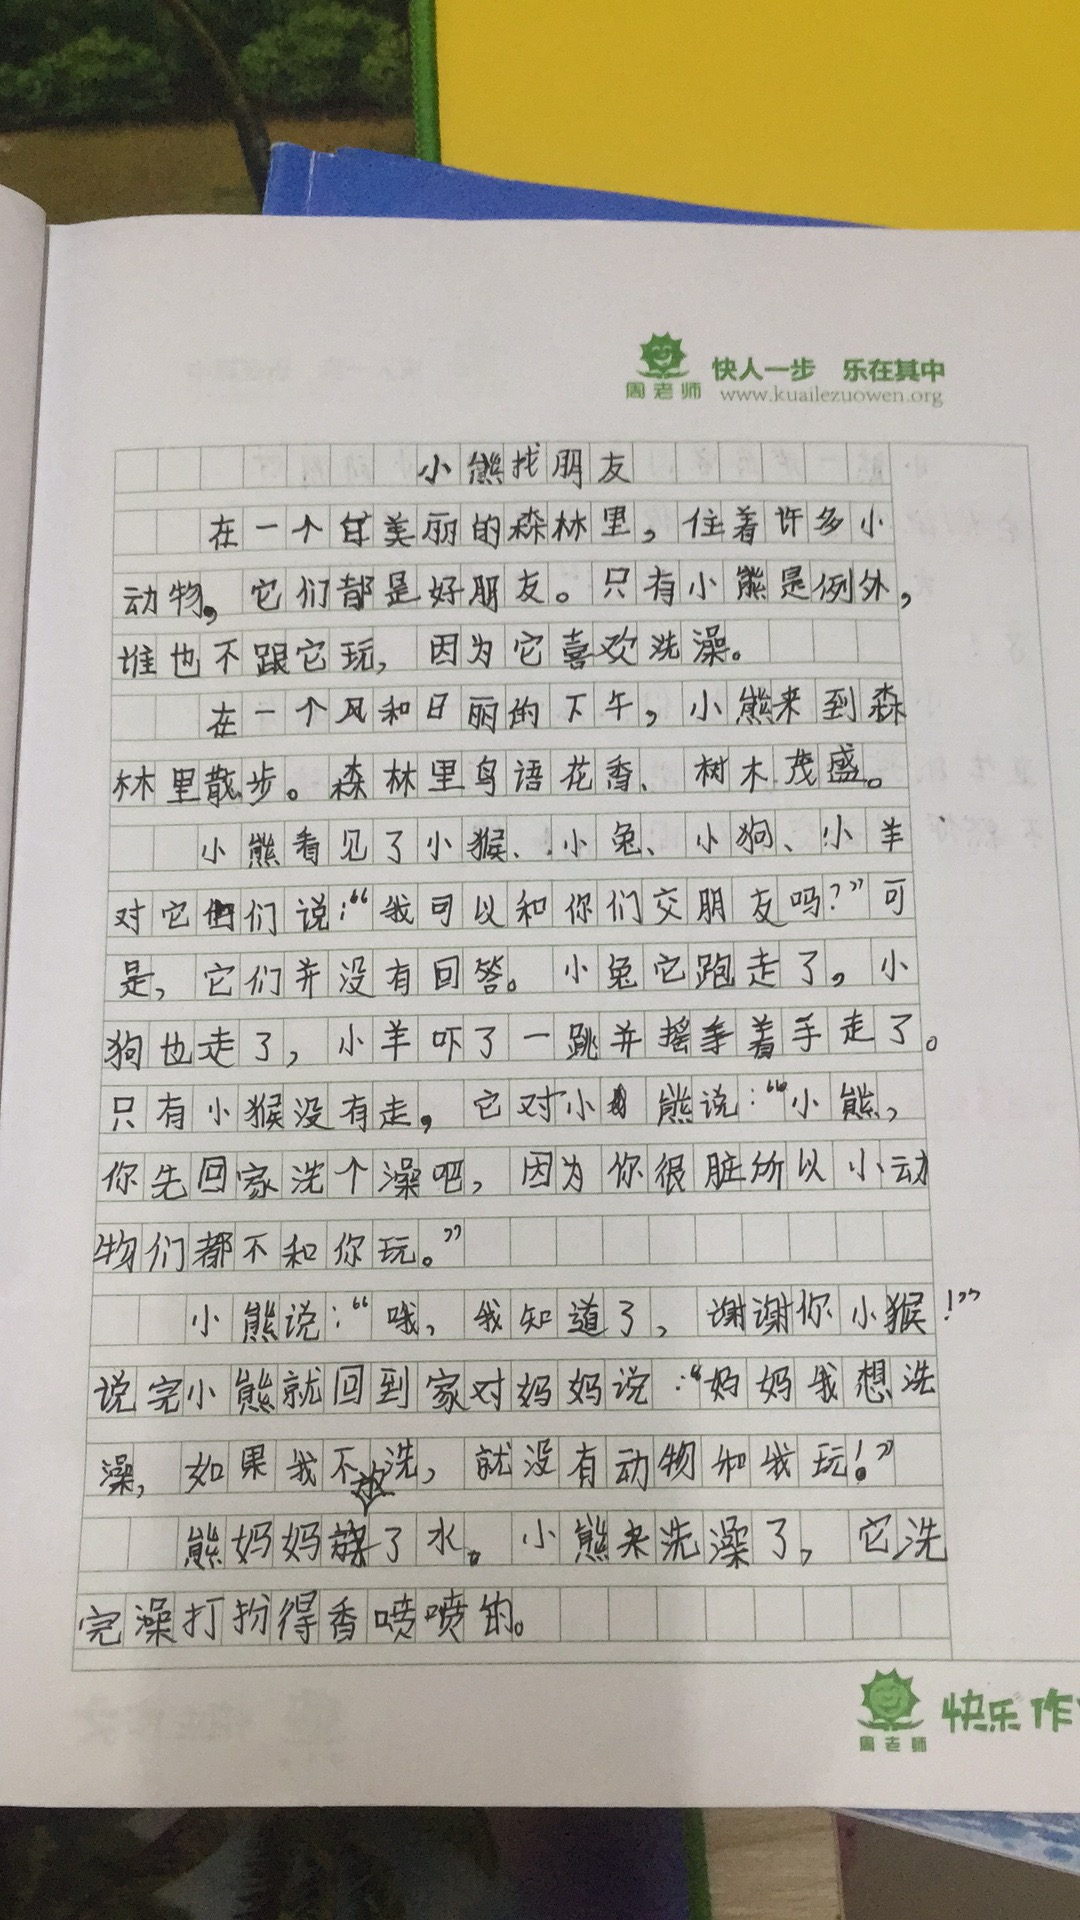 周老师
快人一步 乐在其中
www.kuailezuowen.org
小熊找朋友
在一个美丽的森林里，住着许多小
动物。它们都是好朋友。只有小熊是例外，
谁也不跟它玩，因为它喜欢洗澡。
在一个风和日丽的下午，小熊来到森
林里散步。森林里鸟语花香、树木茂盛。
小熊看见了小猴、小兔、小狗、小羊
对它们说：“我可以和你们交朋友吗？”可
是，它们并没有回答。小兔它跑走了。小
狗也走了，小羊吓了一跳并摇着手走了。
只有小猴没有走，它对小熊说：“小熊，
你先回家洗个澡吧，因为你很脏所以小动
物们都不和你玩。”
小熊说：“哦，我知道了，谢谢你小猴！”
说完小熊就回到家对妈妈说：“妈妈我想洗
澡，如果我不洗，就没有动物和我玩！”
熊妈妈放了水。小熊来洗澡了，它洗
完澡打扮得香喷喷的。
周老师
快乐作